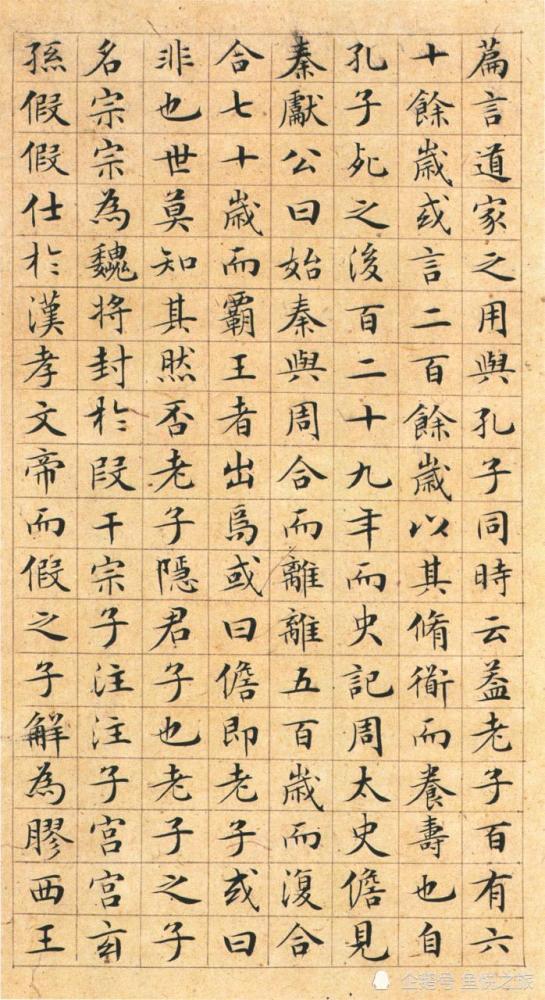 篇言道家之用與孔子同時云蓋老子百有六
十餘歲或言二百餘歲以其脩衜而養壽也自
孔子死之後百二十九年而史記周太史儋見
秦獻公曰始秦與周合而離離五百歲而復合
合七十歲而霸王者出焉或曰儋即老子或曰
非也世莫知其然否老子隱君子也老子之子
名宗宗為魏將封於段干宗子注注子宮宮玄
孫假假仕於漢孝文帝而假之子解為膠西王
企鹅号